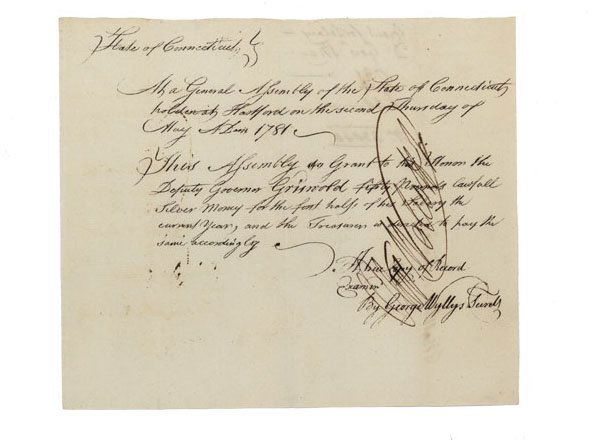 State of Connecticut
At a General Assembly of the State of Connecticut
holden at Hartford on the second Thursday of
May A Dom 1781
This Assembly do Grant to his Honor the
Deputy Governor Griswold fifty Pounds lawfull
Silver Money for the first half of his Salary the
current Year, and the Treasurer is directed to pay the
same accordingly
A true Copy of Record
Examin
By George Wyllys Secretʸ